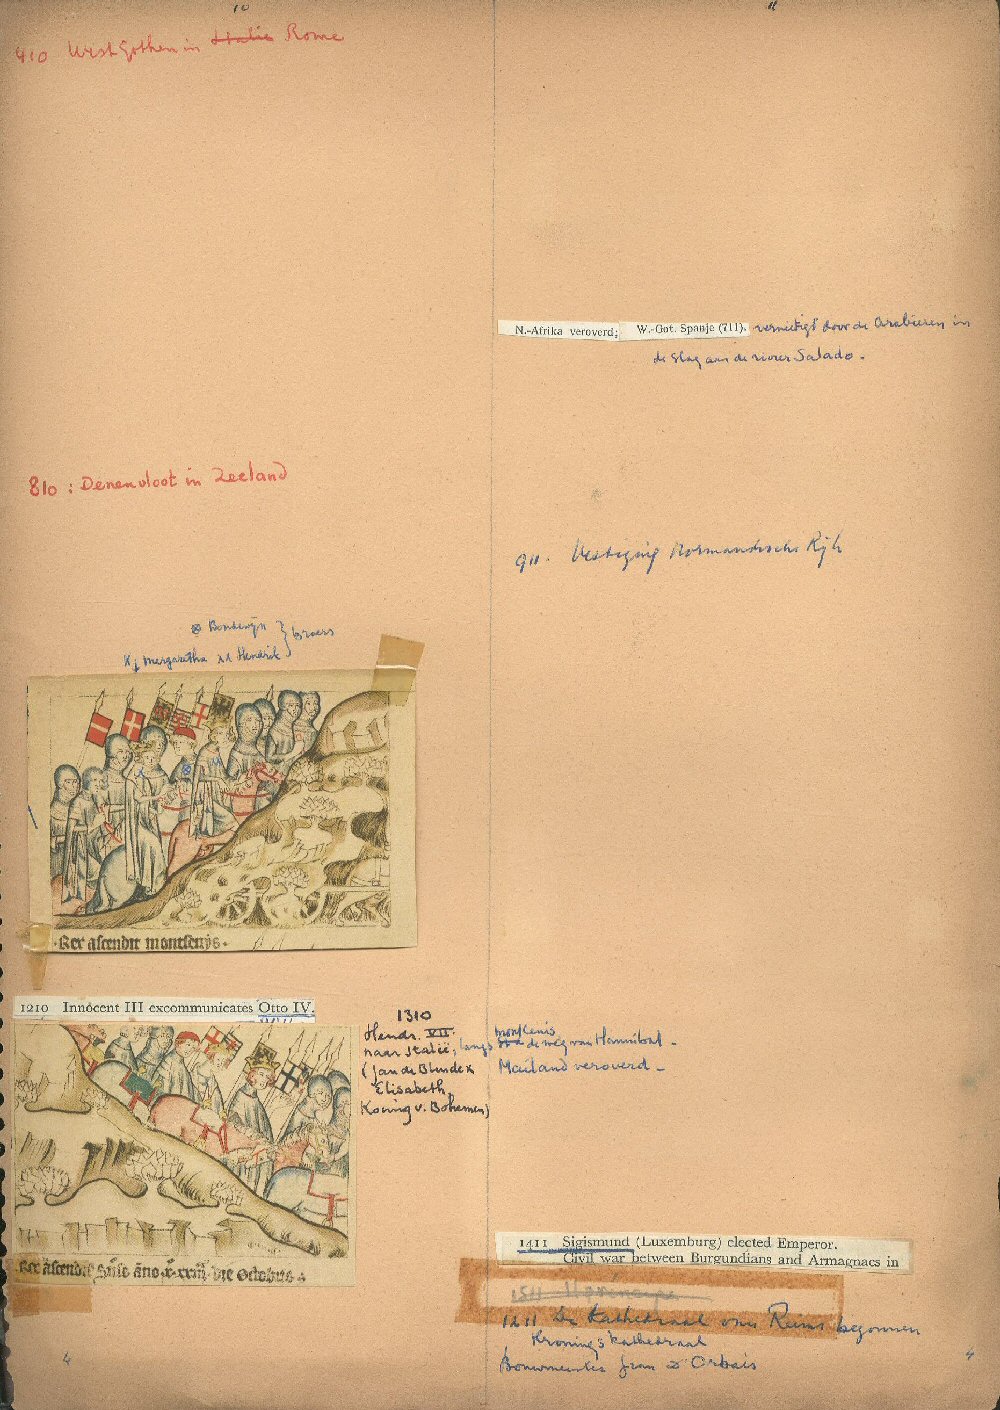 10
11
410 West Gothen in Italie Rome
N.-Afrika veroverd; W.-Got. Spanje (711). vernietigd door de Arabieren in
de slag aan de rivier Salado.
810 : Denenvloot in Zeeland
911. Vestiging Normandische Rijk
Boudewijn } broers
Margaretha Hendrik
Rex ascendit montsenys.
1210 Innocent III excommunicates Otto IV.
1310
Hendr. VII.
naar Italië, langs
(Jan de Blinde x
Elisabeth,
Koning v. Bohemen)
montCenis
de weg van Hannibal -
Mailand veroverd -
1411 Sigismund (Luxemburg) elected Emperor.
Civil war between Burgundians and Armagnacs in
1211 De Kathedraal van Reims begonnen
Kronings kathedraal
Bouwmeester Jean d'Orbais
4
4